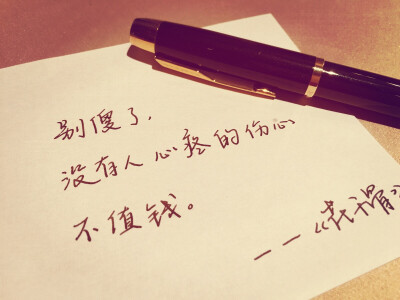 别傻了,
没有人心疼的伤心
不值钱。
——《花千骨》